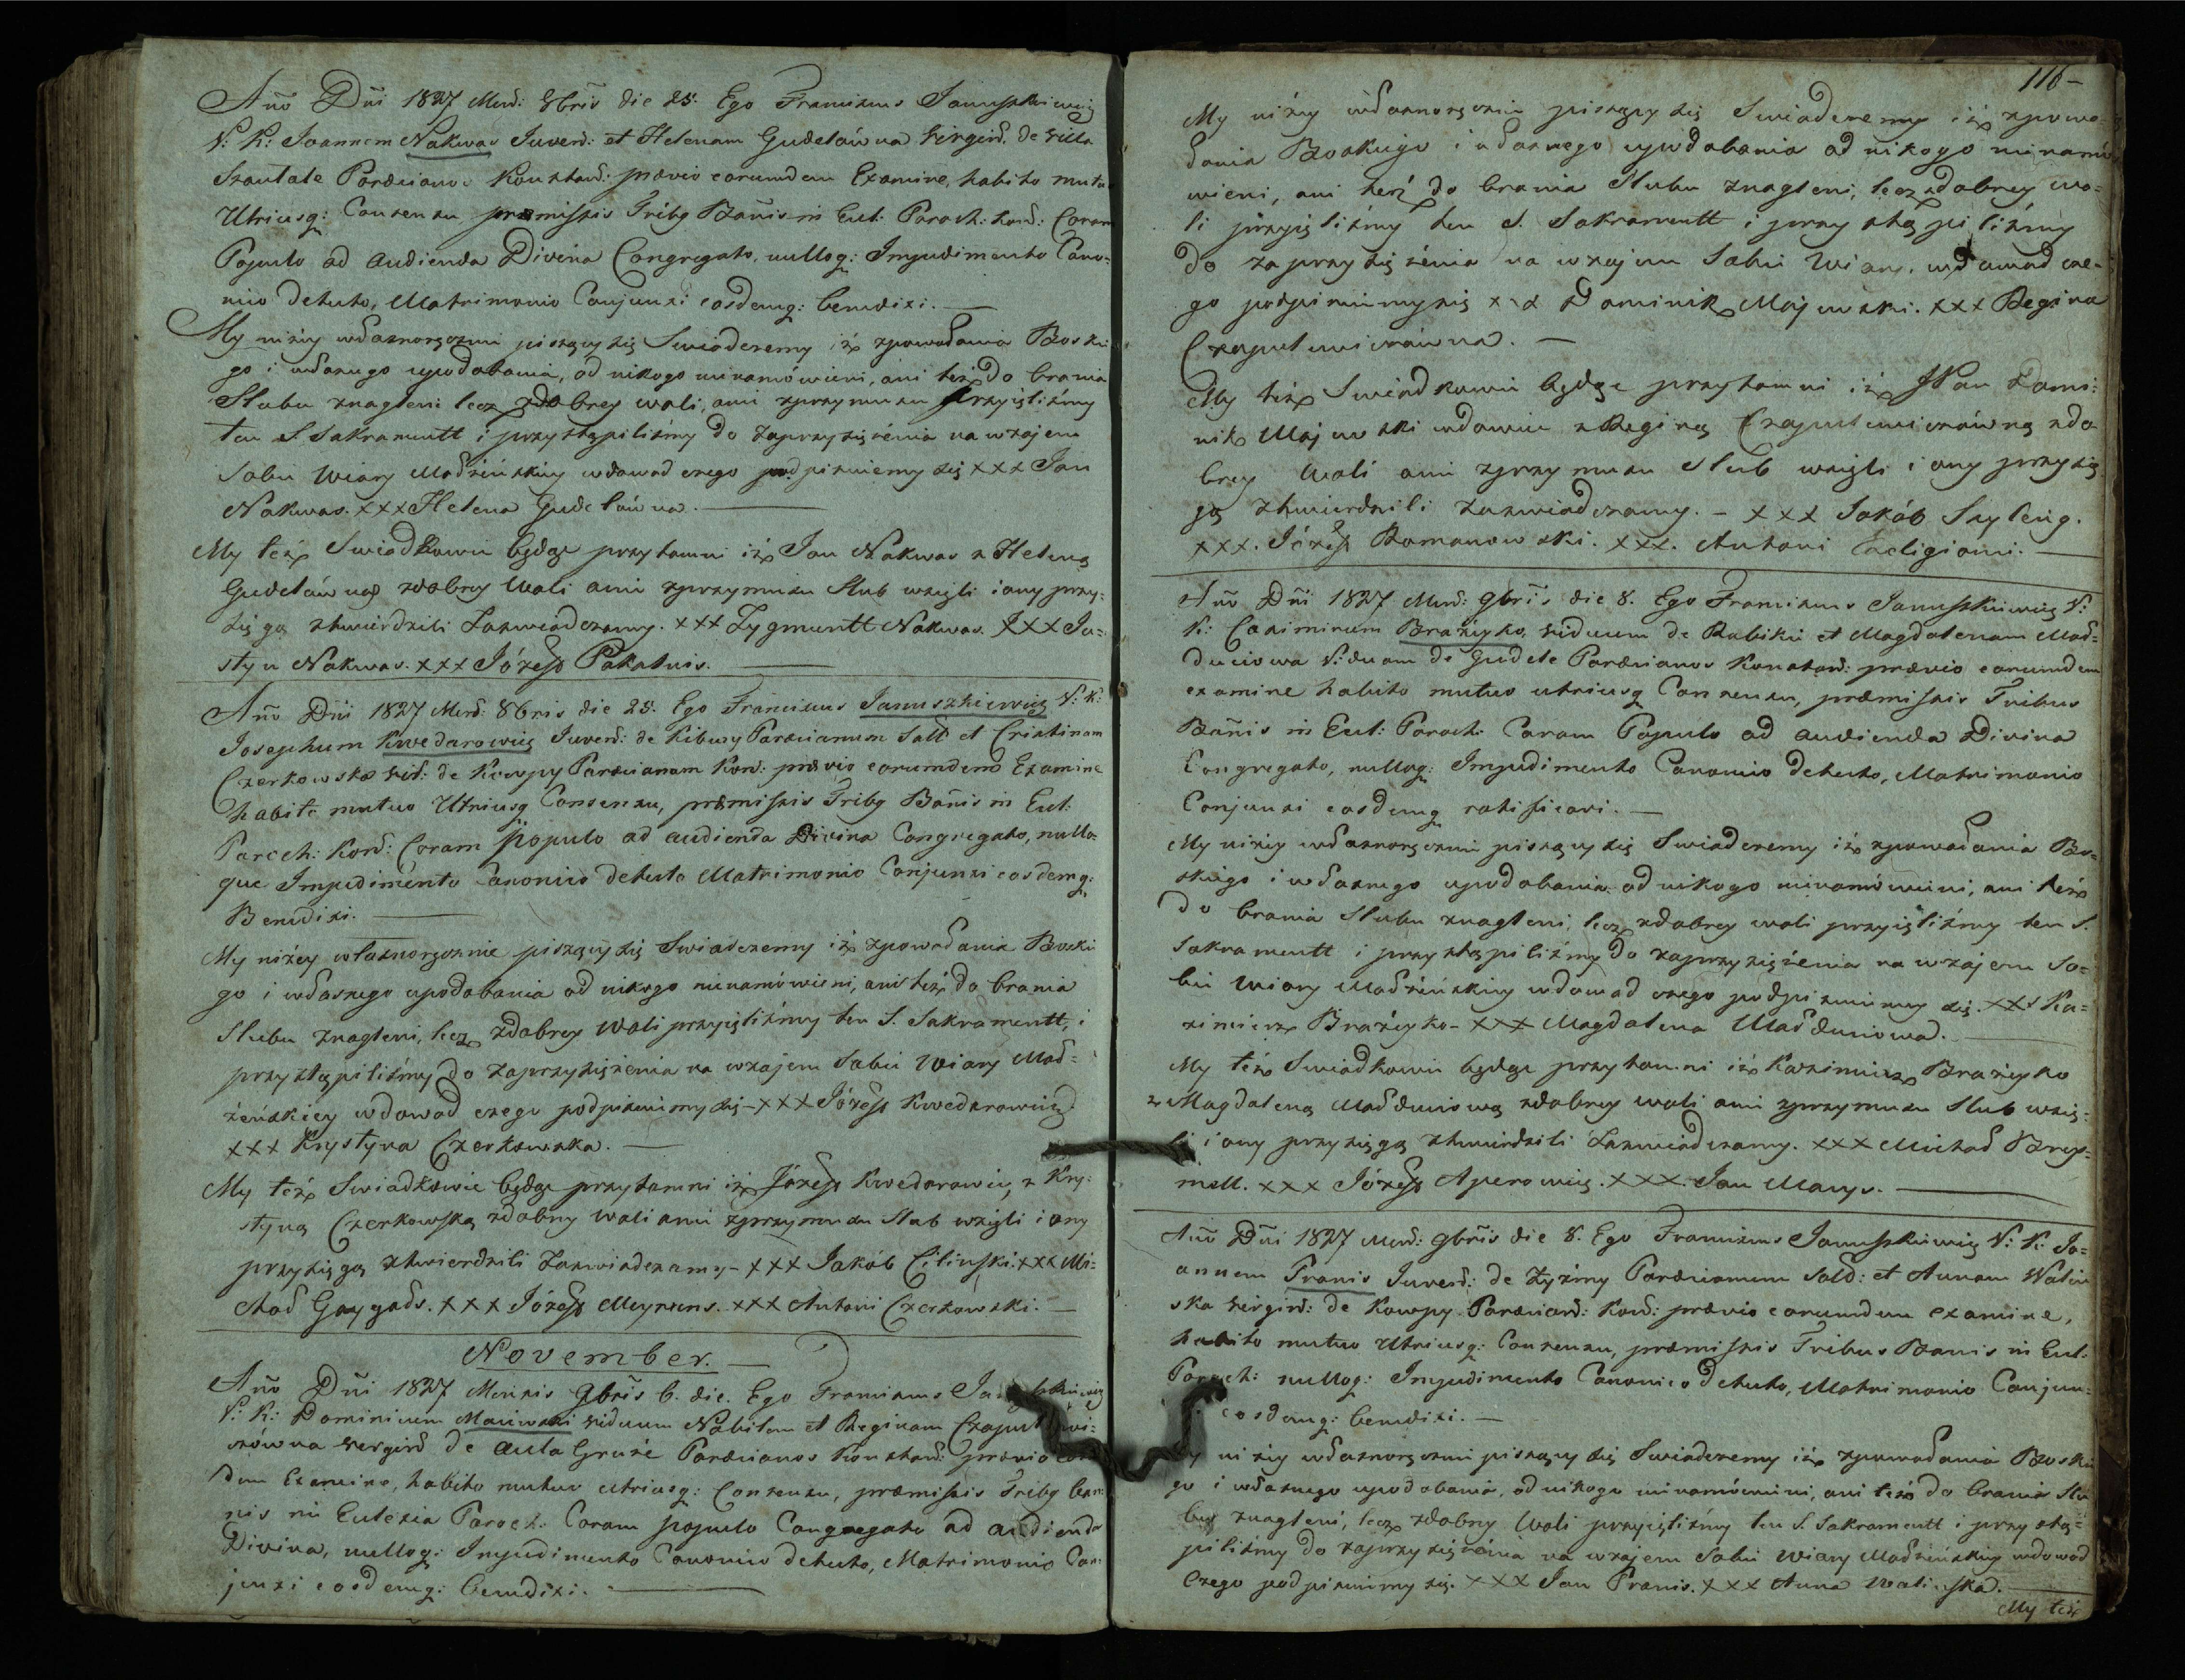 Año Dñi 1827 Mend: 8bris die 25. Ego Franciscus Januszkiewicz
V: K: Joannem Nakwas Juvend: et Helenam Gudelówna Virgind: de villa
Szantale Paræcianos Konstand: prævio eorumdem Examine, habito mutuo
Utriusq: Consensu præmissis Tribg Bañis in Eccl: Paroch: Kond: Coram
Populo ad audienda Divina Congregato, nulloq: Impedimento Cano-
nico detecto, Matrimonio Conjunxi eosdemq: benedixi. —
My niżey własnoręcznie piszący się Swiadczemy iż zpowodania Boskie
go i własnego upodobania, od nikogo nienamówieni, ani też do brania
Slubu znagleni lecz zdobrey woli, ani zprzymusu przyięliśmy
ten S. Sakramentt i przystąpiliśmy do zaprzysiężenia na wzajem
sobie Wiary Małżeńskiey wdowod czego podpisuiemy się xxx Jan
Nakwas. xxx Helena Gudelówna. —
My też Swiadkowie będąc przytomni iż Jan Nakwas z Heleną
Gudelówną zdobrey Woli ani zprzymusu Slub wzięli i ony przy-
sięgą ztwierdzili Zaswiadczamy. xxx Zygmuntt Nakwas. xxx Ju-
styn Nakwas. xxx Józeff Pakalnis. —
Año Dñi 1827 Mend: 8bris die 25. Ego Franciscus Januszkiewicz V: K:
Josephum Kwedarowicz Juvend: de Kibury Paræcianum Sałł et Cristinam
Czerkowska vid: de Kowpy Paræcianam Kond: prævio eorumdem Examine
habito mutuo Utriusq Consensu, præmissis Tribg Bañis in Eccl:
Paroch: Kond: Coram populo ad audienda Divina Congregato, nullo-
que Impedimento Canonico detecto Matrimonio Conjunxi eosdemq:
Benedixi. —
My niżey własnoręcznie piszący się Swiadczemy iż zpowodania Boskie
go i własnego upodobania od nikogo nienamówieni, ani też do brania
Slubu znagleni, lecz zdobrey Woli przyięliśmy ten S. Sakramentt, i
przystąpiliśmy do zaprzysiężenia na wzajem sobie Wiary Mał-
żeńskiey wdowod czego podpisuiemy się - xxx Józeff Kwedarowicz
xxx Krystyna Czerkowska. —
My też Swiadkowie będąc przytomni iż Józeff Kwedarowicz z Kry-
styną Czerkowską zdobrey Woli ani zprzymusu Slub wzięli i ony
przysięgą ztwierdzili Zaswiadczamy - xxx Jakób Cilinski. xxx Mi-
chał Gaygałs. xxx Józeff Meyruns. xxx Antoni Czerkowski. —
November. —
Año Dñi 1827 Mensis 9bris 6. die. Ego Franciscus Januszkiewicz
V: K: Dominicum Maiewski viduum Nobilem et Reginam Czaputowi-
czówna Virgind de aula Gruże Paræcianos Konstand: prævio eorum
dem Examine, habito mutuo utriusq: Consensu, præmissis Tribg ban-
nis in Eclesia Paroch: Coram populo Congregato ad audienda
Divina, nulloq: Impedimento Canonico detecto, Matrimonio Con-
junxi eosdemq: benedixi. —
116 -
My niżey własnoręcznie piszący się Swiadczemy iż zpowo-
dania Boskiego i własnego upodobania od nikogo nienamó
wieni, ani też do brania Slubu znagleni, lecz zdobrey wo-
li przyięliśmy ten S. Sakramentt i przystąpiliśmy
do zaprzysiężenia na wzajem sobie Wiary. wdowod cze-
go podpisuiemy się xxx Dominik Majewski. xxx Regina
Czaputowiczówna. —
My też Swiadkowie będąc przytomni iż JPan Domi-
nik Majewski wdowiec z Reginą Czaputowiczówną zdo
brey Woli ani zprzymusu Slub wzięli i ony przysię
gą ztwierdzili Zaswiadczamy. - xxx Jakób Szyleng.
xxx. Józeff Romanowski. xxx. Antoni
Año Dñi 1827 Mend: 9bris die 8. Ego Franciscus Januszkiewicz V:
K: Casimirum Brażysko viduum de Rubikie et Magdalenam Moł-
duciowa Viduam de Gudele Paræcianos Konstand: prævio eorumdem
examine habito mutuo utriusq Consensu, præmissis Tribus
Bañis in Eccl: Paroch: Coram Populo ad audienda Divina
Congregato, nulloq: Impedimento Canonico detecto, Matrimonio
Conjunxi eosdemq ratificavi. —
My niżey własnoręcznie piszący się Swiadczemy iż zpowodania Bo-
skiego i własnego upodobania od nikogo nienamówieni, ani też
do brania Slubu znagleni, lecz zdobrey woli przyięliśmy ten S.
Sakramentt i przystąpiliśmy do zaprzysiężenia na wzajem so-
bie Wiary Małżeńskiey wdowod czego podpisuiemy się. xxx Ka-
zimierz Brażysko - xxx Magdalena Mołduciowa. —
My też Swiadkowie będąc przytomni iż Kazimierz Brażysko
z Magdaleną Mołduciową zdobrey woli ani zprzymusu Slub wzię-
li i ony przysięgą ztwierdzili Zaswiadczamy. xxx Michał
xxx Józeff Aperowicz. xxx. Jan Marys. —
Año Dñi 1827 Mend: 9bris die 8. Ego Franciscus Januszkiewicz V: K: Jo-
annem Pranis Juvend: de Żyżmy Paræcianum Sałd: et Annam Walin
ska Virgind: de Kowpy Paræciand: Kond: prævio eorumdem examine,
habito mutuo Utriusq: Consensu, præmissis Tribus Banis in Eccl:
Paroch: nulloq: Impedimento Canonico detecto, Matrimonio Conjun-
xi eosdemq: benedixi. —
My niżey własnoręcznie piszący się Swiadczemy iż zpowodania Boskie
go i własnego upodobania, od nikogo nienamówieni, ani też do brania Slu
bu znagleni, lecz zdobrey Woli przyięliśmy ten S. Sakramentt i przystą-
piliśmy do zaprzysiężenia na wzajem sobie Wiary Małżeńskiey wdowod
czego podpisuiemy się. xxx Jan Pranis. xxx Anna Walinska. —
My też